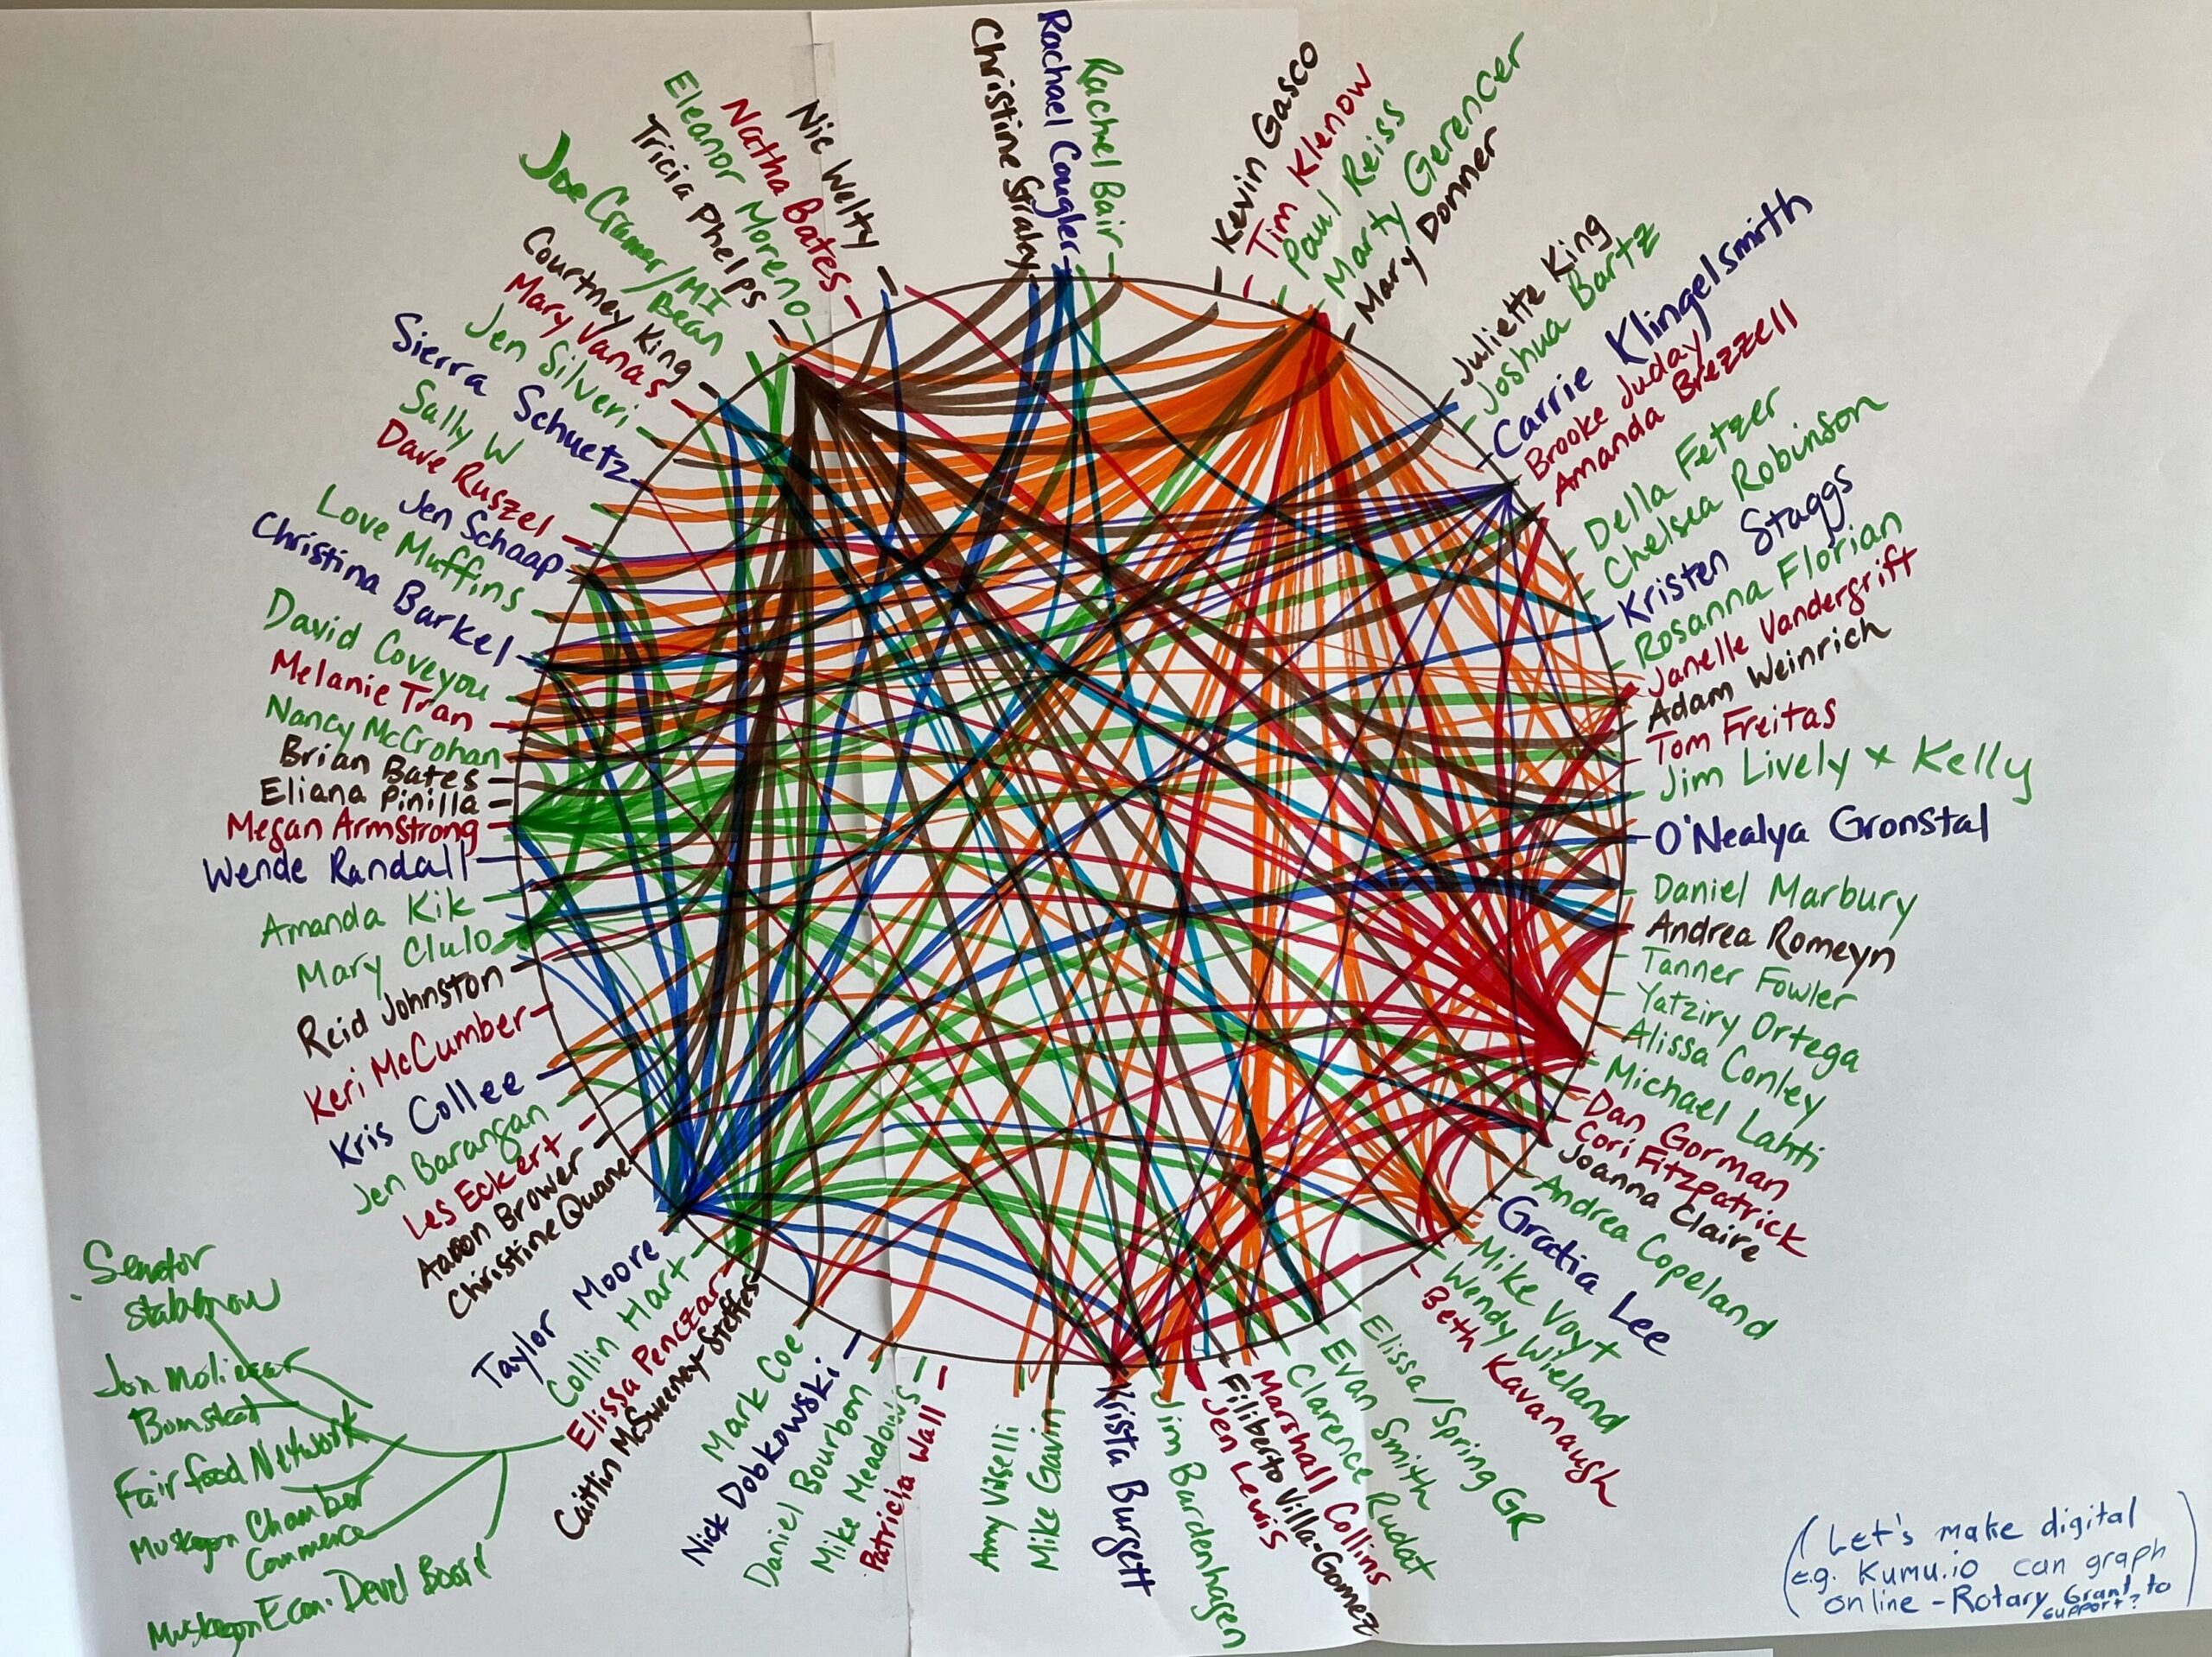 Christine Straley
Rachael Cougler
Rachel Bair
Kevin Gasco
Tim Klenow
Paul Reiss
Marty Gerencer
Mary Donner
Juliette King
Joshua Bartz
Carrie Klingelsmith
Brooke Juday
Amanda Brezzell
Della Fetzer
Chelsea Robinson
Kristen Staggs
Rosanna Florian
Janelle Vandergrift
Adam Weinrich
Tom Freitas
Jim Lively + Kelly
O'Nealya Gronstal
Daniel Marbury
Andrea Romeyn
Tanner Fowler
Yatziry Ortega
Alissa Conley
Michael Lahti
Dan Gorman
Cori Fitzpatrick
Joanna Claire
Andrea Copeland
Gratia Lee
Mike Voyt
Wendy Wieland
Beth Kavanaugh
Elissa/Spring GR
Evan Smith
Clarence Rudat
Marshall Collins
Filiberto Villa-Gomez
Jen Lewis
Jim Bardenhagen
Krista Burgett
Mike Gavin
Amy
Patricia Wall
Mike Meadows
Daniel Bourbon
Nick Dobkowski
Mark Coe
Caitlin McSweeney-Steffes
Elissa Penczar
Collin Hart
Taylor Moore
Christine Quane
Aaron Brower
Les Eckert
Jen Barangan
Kris Collee
Keri McCumber
Reid Johnston
Mary Clulo
Amanda Kik
Wende Randall
Megan Armstrong
Eliana Pinilla
Brian Bates
Nancy McCrohan
Melanie Tran
David Coveyou
Christina Barkel
Love Muffins
Jen Schaap
Dave Ruszel
Sally W
Sierra Schuetz
Jen Silveri
Mary Vanas
Courtney King
Joe Cramer/MI
Bean
Tricia Phelps
Eleanor Moreno
Natha Bates
Nic Welty
Senator
Jon
Fair food Network
Muskegon Chamber
Commerce
Muskegon Econ. Devel Board
(Let's make digital
e.g. Kumu.io can graph
online - Rotary Grant to
support?)